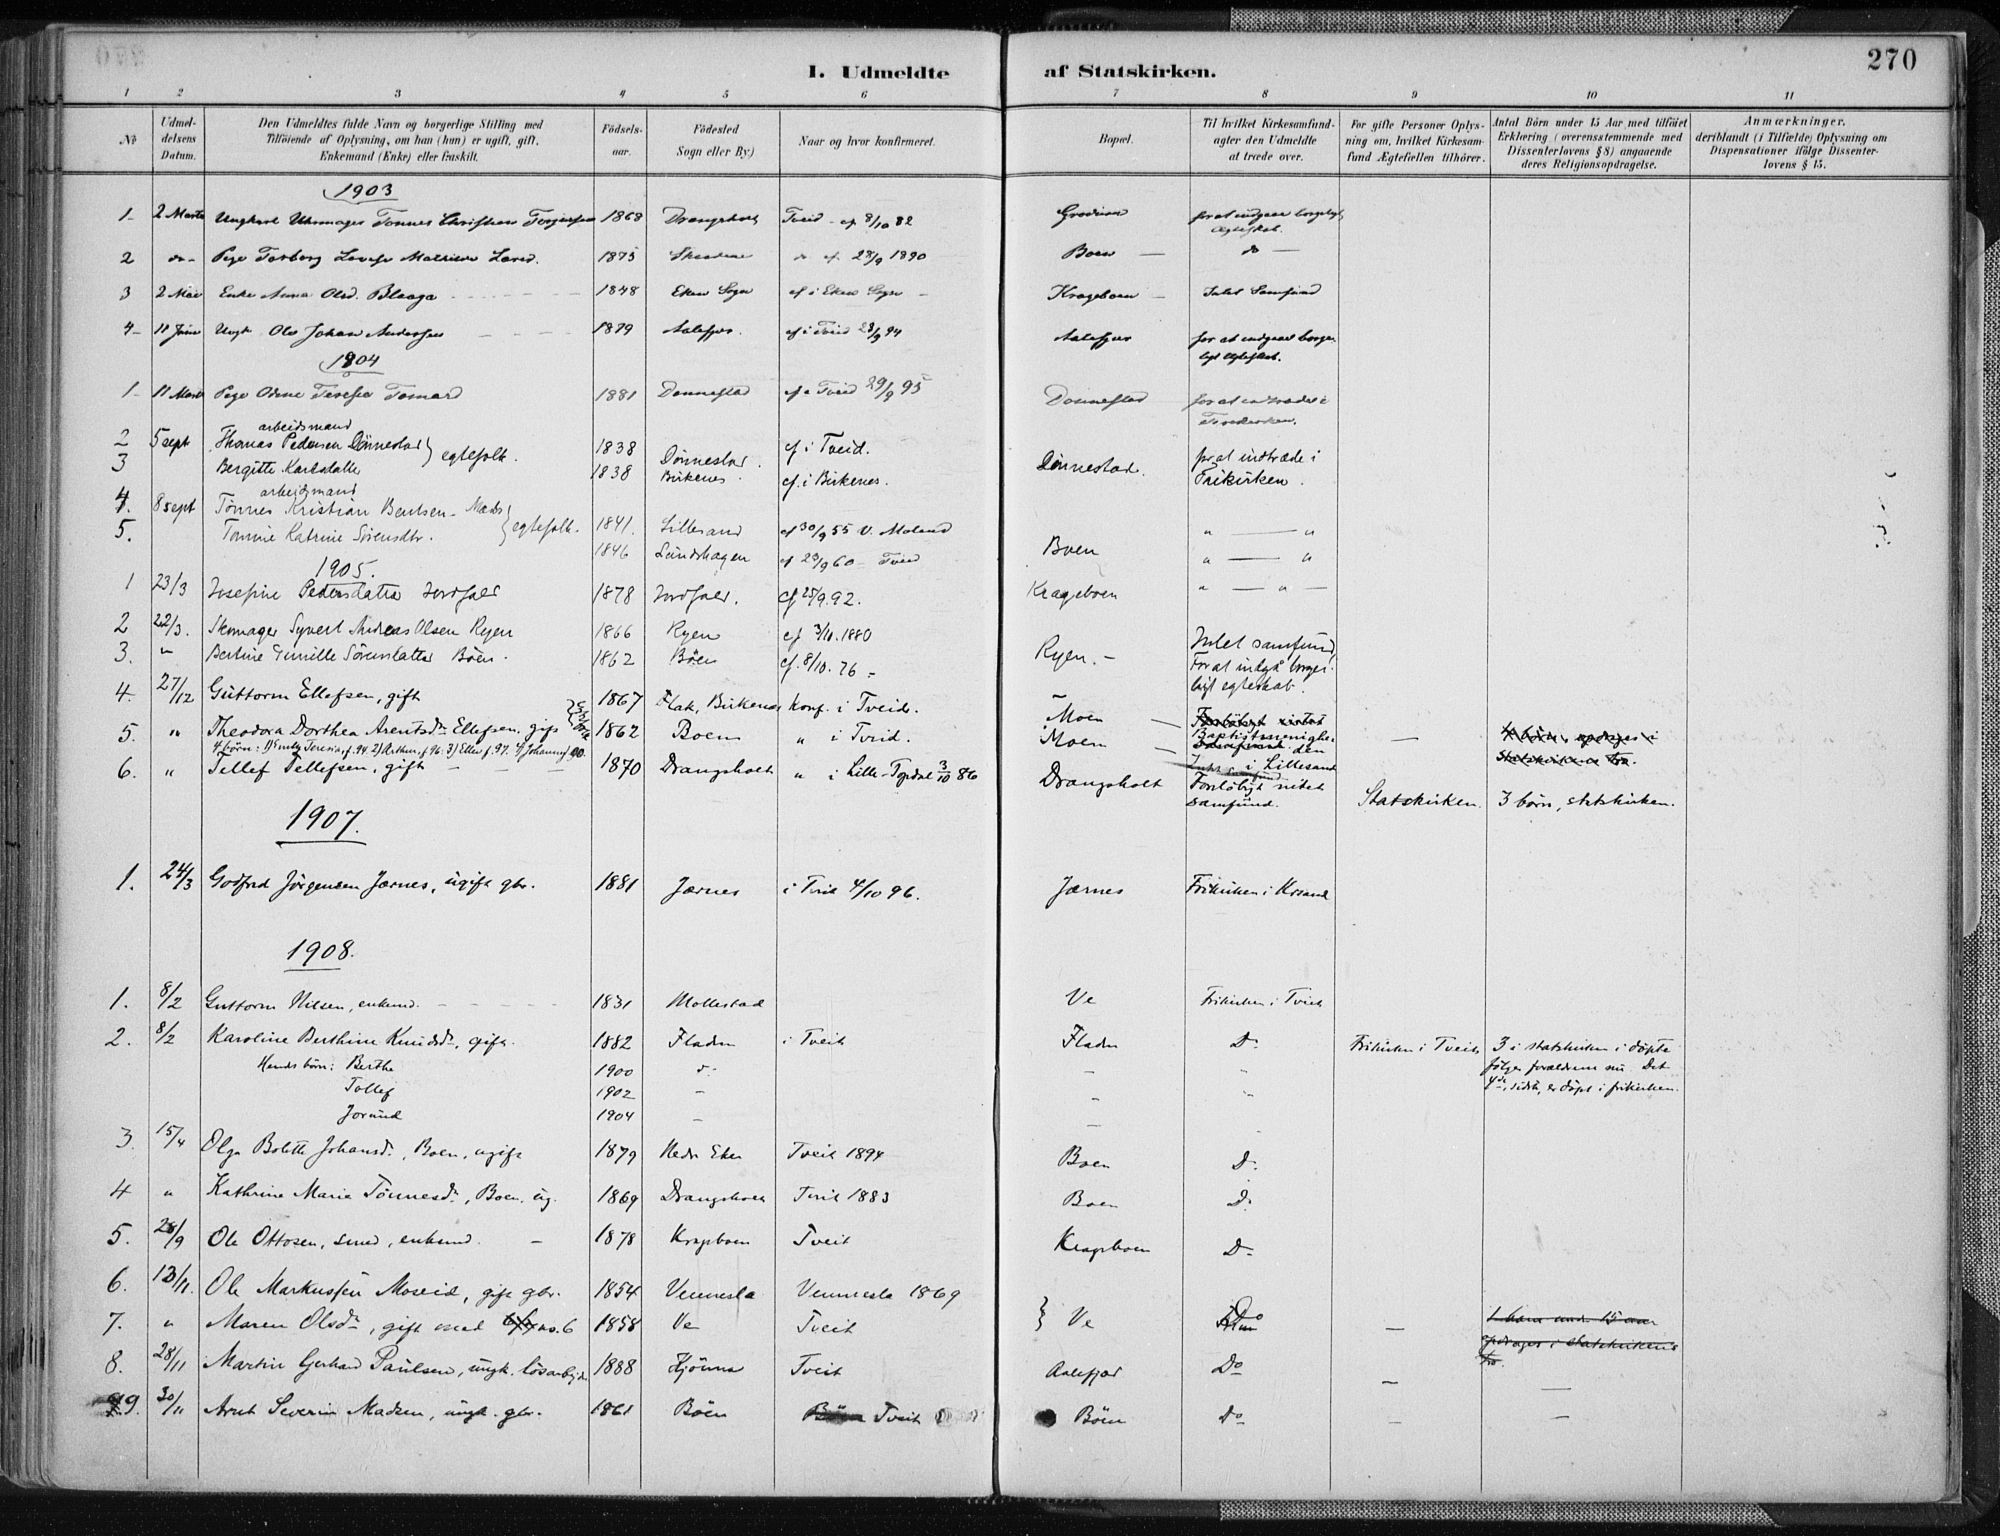 270
I. Udmeldte af Statskirken.
1 2 3 4 5 6 7 8 9 10 11
No
Udmeldelsens Datum.
Den Udmeldtes fulde Navn og borgerlige Stilling med
Tilføiende af Oplysning, om han (hun) er ugift, gift,
Enkemand (Enke) eller fraskilt.
Fødselsaar.
Fødested
Sogn eller By.)
Naar og hvor konfirmeret.
Bopæl.
Til hvilket Kirkesamfund
agter den Udmeldte
at træde over.
For gifte Personer Oplysning om, hvilket Kirkesamfund Ægtefællen tilhører.
Antal Børn under 15 Aar, med tilføiet
Erklæring (overensstemmende med
Dissenterlovens § 8) angaaende
deres Religionsopdragelse.
Anmærkninger,
deriblandt (i Tilfælde) Oplysning om
Dispensationer ifølge Dissenterlovens § 15.
1903
1- 2 Marts Ungkarl Uhrmager Tønnes Christian 1868 Drangsholt Tveid cf 8/10 82 for at indgaa borgeligt
Ægteskab.
2 do Pige Torborg 1875 do cf 28/9 1890 Boen - do -
3 2 Mai Enke Anna Olsd. Blaaga 1848 Eken Sogn cf i Eken Sogn - Krageboen - Intet Samfund
4- 11 Juni Ungk Ole Johan Andersen 1879 Aalefjær. cf i Tveid 23/9 94 Aalefjær for at indgaa borger
ligt Ægteskab.
1904
1- 11 Marts Pige 1881 Dønnestad cf i Tveid 29/9 95 Dønnestad for at indtræde i
Frikirken.
arbeidsmand
2 5 sept Thomas Pedersen Dönnestad } egtefolk. 1838 Dönnestad. cf i Tveid. Dönnestad. for at indtræde i
3 Bergitte Karlsdatter 1838 Birkenes. cf. i Birkenes. Frikirken.
arbeidsmand
4. 8 sept Tönnes Kristian Bentsen } egtefolk. 1841. Lillesand cf 30/9 55 V. Moland " — "
5. Tomine Katrine Sörensdtr. 1846 cf 23/9 60 - Tveid Boen " — "
1905.
1 23/3 Josefine Pedersdatter Jordfald 1878 Jordfald. cf 25/9.92. Krageboen " — " —
2 22/3. Skomager Syvert Andreas Olsen Ryen 1866 Ryen cf 3/10.1880 Ryen. - Intet samfund
3. " Bertine Gunille Sörensdatter Böen. 1862 Böen cf. 8/10.76 - For at indgå borger
ligt egteskab.
4. 27/12 Guttorm Ellefsen, gift 1867 Flak, Birkenes konf. i Tveid. Moen
5. " Theodora Dorthea Arentsdr. Ellefsen. gift 1862 Boen " i Tveid. Moen — Baptistmenighe
den
i Lillesand —
4 börn: 1) Emily Teresia, f. 94. 2) Arthur, f. 96. 3) Ellen f. 97. 4) Johannes f. 00.
6. " Tellef Tellefsen, gift — — — 1870 Drangsholt " i Lille-Topdal 3/10 86 Drangsholt Forelöbigt intet
samfund. Statskirken 3 börn, statskirken.
1907.
1. 24/3 Godfred Jörgensen Jærnes, ugift gbr. 1881 Jærnes i Tveid 4/10 96. Jærnes Frikirken i Krsand
1908.
1. 8/2 Guttorm Nilsen, enkemd. 1831 Mollestad Ve Frikirken i Tveit
2. 8/2 Karoline Berthine Knudsdr., gift. 1882 Fladen i Tveit Fladen Do Frikirken i Tveit 3 i statskirken døpte
Hends børn: Berthe 1900 do - " følger forældrene nu Det
Tollef 1902 - - " 4de, sidste, er døpt i frikirken.
Jorund 1904 - - -
3. 15/4 Olga Bolette Johansdr., Boen, ugift 1879 Nedr Eker Tveit 1894 Boen Do
4 " Kathrine Marie Tönnesdr., Boen, ug. 1869 Drangsholt Tveit 1883 Boen Do
5. 28/9 Ole Ottosen, smed, enkemd. - 1878 Krageboen Tveit Krageboen Do
6. 13/11. Ole Markussen Moseid, gift gbr. 1854 Vennesla Vennesla 1869
7. " Maren Olsdr., gift med no. 6 1858 Ve Tveit } Ve Do - 1 barn under 15 aar
opdrages i statskirkens
tro.
8. 28/11 Martin Gerhard Paulsen, ungk. lösarbejder 1888 Tveit Aalefjær Do - —
9. 30/11 Arnt Severin Madsen, ungk. gbr. 1861 Böen Tveit Böen Do - —